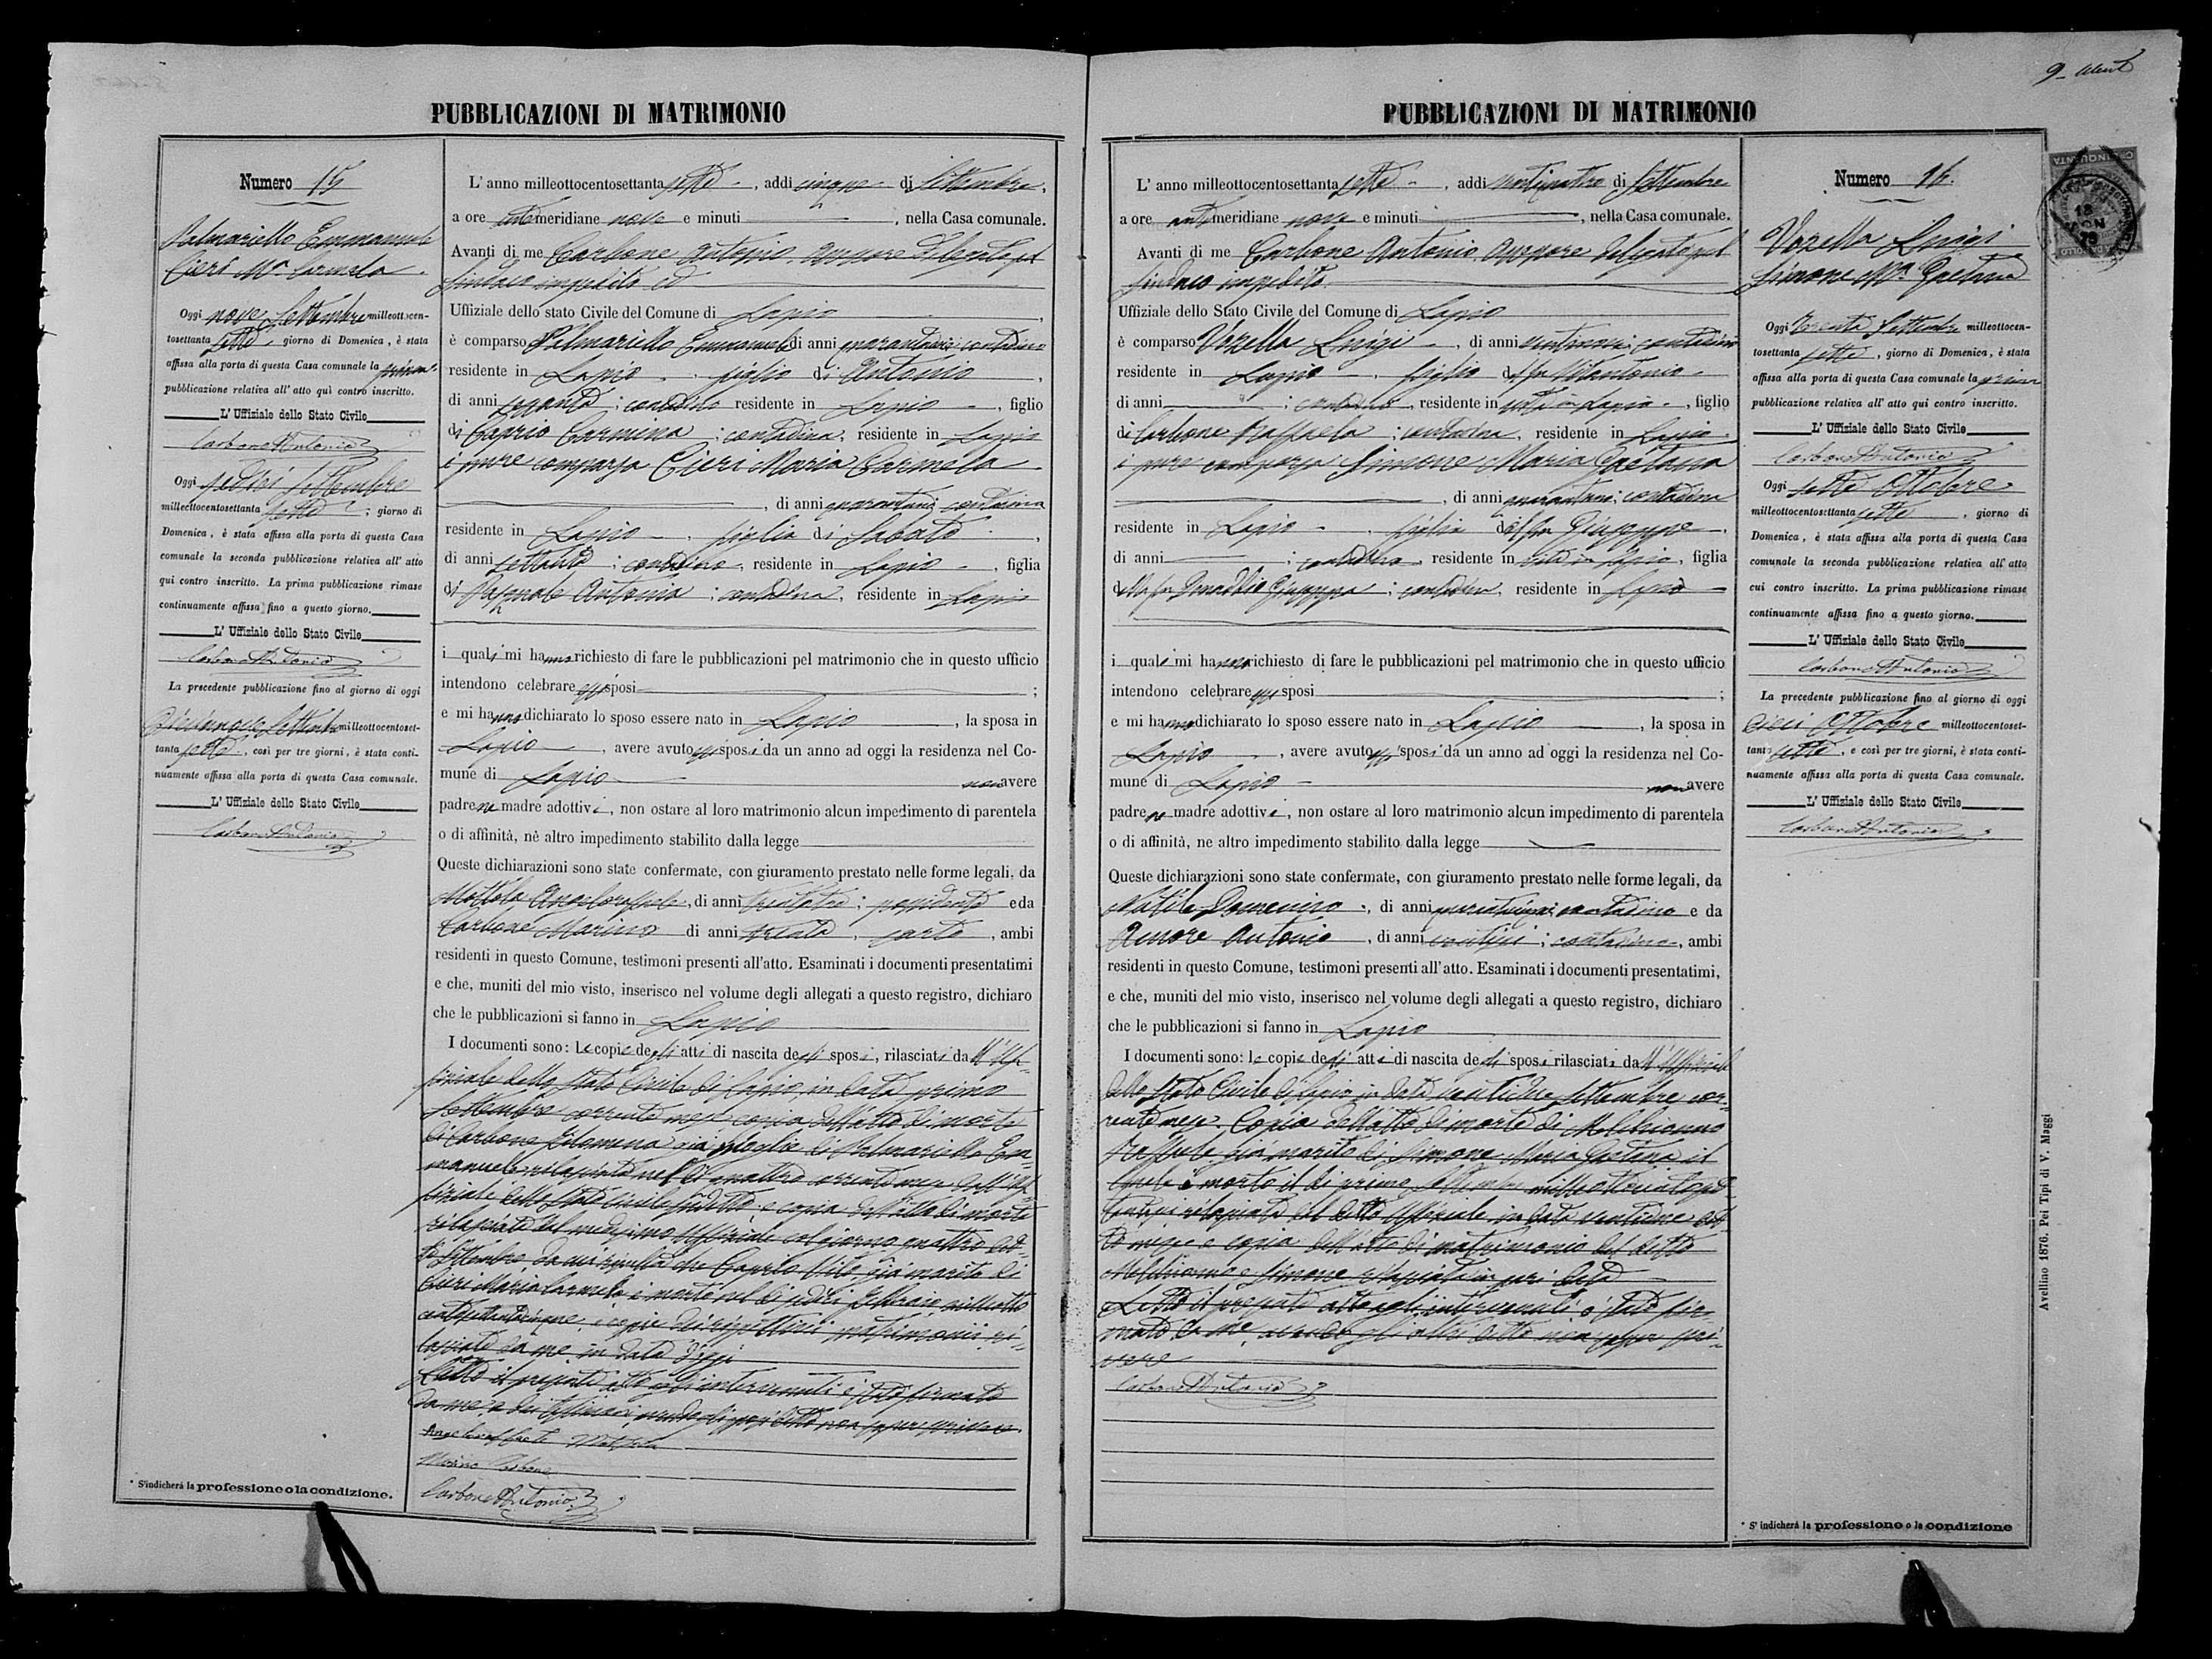 9
PUBBLICAZIONI DI MATRIMONIO
Numero 15
Palmariello Emmanuele
Cieri Mª Carmela
Oggi nove Settembre milleottocen-
tosettanta sette, giorno di Domenica, è stata
affissa alla porta di questa Casa comunale la prima
pubblicazione relativa all'atto quì contro inscritto.
L'Uffiziale dello Stato Civile
Carbone Antonio
Oggi sedici Settembre
milleottocentosettanta sette; giorno di
Domenica, è stata affissa alla porta di questa Casa
comunale la seconda pubblicazione relativa all'atto
qui contro inscritto. La prima pubblicazione rimase
continuamente affissa fino a questo giorno.
L'Uffiziale dello Stato Civile
Carbone Antonio
La precedente pubblicazione fino al giorno di oggi
Diecinnove Settembre milleottocentoset-
tanta sette, così per tre giorni, è stata conti-
nuamente affissa alla porta di questa Casa comunale.
L'Uffiziale dello Stato Civile
Carbone Antonio
* S'indicherà la professione o la condizione.
L'anno milleottocentosettanta sette, addì cinque di Settembre,
a ore antimeridiane nove e minuti, nella Casa comunale.
Avanti di me Carbone Antonio, Assessore Delegato pel
Sindaco impedito ed
Uffiziale dello stato Civile del Comune di Lapio
è comparso Palmariello Emmanuele di anni contadino
residente in Lapio, figlio di Antonio,
di anni sessanta; contadino residente in Lapio, figlio
di Caprio Carmina; contadina, residente in Lapio
è pure comparsa Cieri Maria Carmela
, di anni contadina
residente in Lapio, figlia di Sabato,
di anni settanta; contadino, residente in Lapio, figlia
di Pasquale Antonia; contadina, residente in Lapio
i quali mi hanno richiesto di fare le pubblicazioni pel matrimonio che in questo ufficio
intendono celebrare essi sposi;
e mi hanno dichiarato lo sposo essere nato in Lapio, la sposa in
Lapio, avere avuto essi sposi da un anno ad oggi la residenza nel Co-
mune di Lapio non avere
padre ne madre adottivi, non ostare al loro matrimonio alcun impedimento di parentela
o di affinità, nè altro impedimento stabilito dalla legge
Queste dichiarazioni sono state confermate, con giuramento prestato nelle forme legali, da
Mottola Angeloraffaele, di anni trentatre; possidente e da
Carbone Marino di anni trenta, sarto, ambi
residenti in questo Comune, testimoni presenti all'atto. Esaminati i documenti presentatimi
e che, muniti del mio visto, inserisco nel volume degli allegati a questo registro, dichiaro
che le pubblicazioni si fanno in Lapio
I documenti sono: Le copie degli atti di nascita degli sposi, rilasciati dall'Uf-
fiziale dello Stato Civile di Lapio, in data primo
Settembre corrente mese copia dell'atto di morte
di Carbone Filomena già moglie di Palmariello Em-
manuele rilasciata nel dì quattro corrente mese dall'Uf-
fiziale dello Stato Civile suddetto, e copia dell'atto di morte
rilasciata dal medesimo Uffiziale col giorno quattro det-
to Settembre, da cui risulta che Caprio Vito già marito di
Cieri Maria Carmela è morto nel dì sedici Febbraio milleotto
centosettantacinque, e copie dei rispettivi matrimonii ri-
lasciate da me in data d'oggi
Letto il presente atto agli intervenuti è stato firmato
da me e dai testimoni, avendo gli sposi detto non sapere scrivere.
Angeloraffaele Mottola
Marino Carbone
Carbone Antonio
PUBBLICAZIONI DI MATRIMONIO
L'anno milleottocentosettanta sette, addì ventiquattro di Settembre
a ore antimeridiane nove e minuti, nella Casa comunale.
Avanti di me Carbone Antonio, Assessore Delegato pel
Sindaco impedito.
Uffiziale dello Stato Civile del Comune di Lapio
è comparso Vozella Luigi, di anni ventinove; contadino
residente in Lapio, figlio del fu Vitantonio
di anni; contadino, residente in vita in Lapio, figlio
di Carbone Raffaela; contadina, residente in Lapio
è pure comparsa Simone Maria Gaetana
, di anni contadina
residente in Lapio, figlia del fu Giuseppe,
di anni; contadino, residente in vita in Lapio, figlia
della fu Giuseppa; contadina, residente in Lapio
i quali mi hanno richiesto di fare le pubblicazioni pel matrimonio che in questo ufficio
intendono celebrare essi sposi;
e mi hanno dichiarato lo sposo essere nato in Lapio, la sposa in
Lapio, avere avuto essi sposi da un anno ad oggi la residenza nel Co-
mune di Lapio non avere
padre ne madre adottivi, non ostare al loro matrimonio alcun impedimento di parentela
o di affinità, ne altro impedimento stabilito dalla legge
Queste dichiarazioni sono state confermate, con giuramento prestato nelle forme legali, da
Natile Domenico, di anni contadino e da
Amore Antonio, di anni; contadino, ambi
residenti in questo Comune, testimoni presenti all'atto. Esaminati i documenti presentatimi,
e che, muniti del mio visto, inserisco nel volume degli allegati a questo registro, dichiaro
che le pubblicazioni si fanno in Lapio
I documenti sono: le copie degli atti di nascita degli sposi rilasciati dall'Uffiziale
dello Stato Civile di Lapio in data ventidue Settembre cor-
rente mese. Copia dell'atto di morte di Melchionno
Raffaele già marito di Simone Maria Gaetana il
quale è morto il dì primo Settembre
rilasciata dal detto Uffiziale in data ventidue det-
to mese e copia dell'atto di matrimonio del detto
Melchionno e Simone rilasciata in pari data
Letto il presente atto agli intervenuti è stato fir-
mato da me, avendo gli altri detto non saper scri-
vere
Carbone Antonio
Numero 16.
Vozella Luigi
Simone Mª Gaetana
Oggi Trenta Settembre milleottocen-
tosettanta sette, giorno di Domenica, è stata
affissa alla porta di questa Casa comunale la prima
pubblicazione relativa all'atto qui contro inscritto.
L'Uffiziale dello Stato Civile
Carbone Antonio
Oggi sette Ottobre
milleottocentosettanta sette, giorno di
Domenica, è stata affissa alla porta di questa Casa
comunale la seconda pubblicazione relativa all'atto
cui contro inscritto. La prima pubblicazione rimase
continuamente affissa fino a questo giorno.
L'Uffiziale dello Stato Civile
Carbone Antonio
La precedente pubblicazione fino al giorno di oggi
Dieci Ottobre milleottocentoset-
tanta sette, e così per tre giorni, è stata conti-
nuamente affissa alla porta di questa Casa comunale.
L'Uffiziale dello Stato Civile
Carbone Antonio
* S'indicherà la professione o la condizione
Avellino 1876. Pei Tipi di V. Maggi